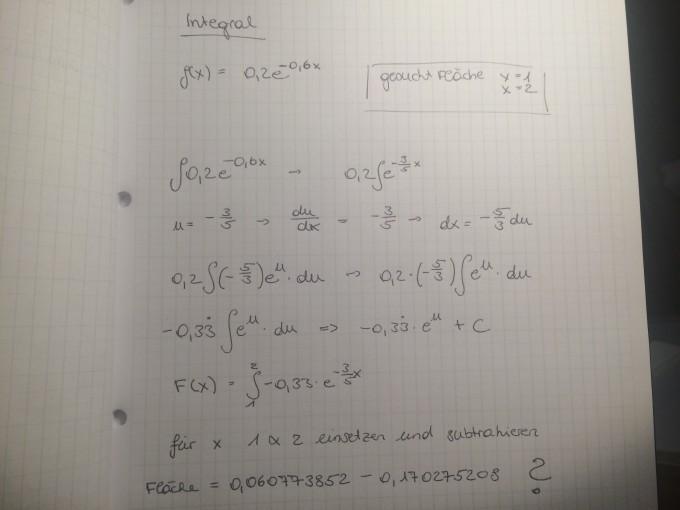 Integral
f(x) = 0,2e^-0,6x
gesucht Fläche x=1
x=2
∫0,2e^-0,6x → 0,2∫e^-3/5x
u= -3/5 → du/dx = -3/5 → dx= -5/3 du
0,2∫(-5/3)e^u · du → 0,2·(-5/3)∫e^u · du
-0,33̇ ∫e^u · du => -0,33̇ · e^u + C
F(x) = ∫₁² -0,33 · e^-3/5x
für x 1 & 2 einsetzen und subtrahieren
Fläche = 0,060773852 - 0,170275208 ?